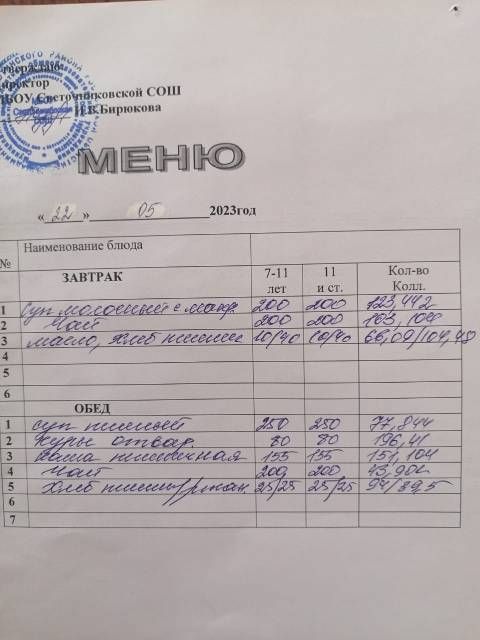 тверждаю
иректор
МБОУ Светочниковской СОШ
И.В.Бирюкова
МЕНЮ
« 22 » 05 2023год
№ Наименование блюда
ЗАВТРАК 7-11 лет 11 и ст. Кол-во Колл.
1 Суп молочный с мака. 200 200 123,442
2 Чай 200 200 103,104
3 масло, хлеб пшенич 10/40 10/40 66,09/104,48
4
5
6
ОБЕД
1 суп 250 250 77,844
2 Куры отвар. 80 80 196,41
3 Каша пшеничная 155 155 151,104
4 Чай 200 200 43,904
5 Хлеб пшен/ржан. 25/25 25/25 94/89,5
6
7